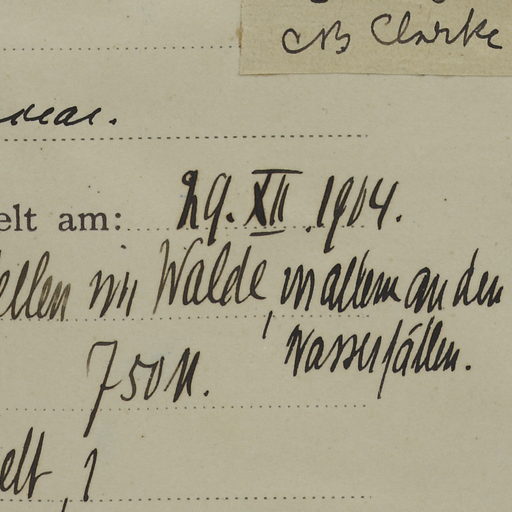 CB Clarke
elt am: 29. XII. 1904.
ellen im Walde, vor allem an den
Wasserfällen.
750 M.
elt, 1